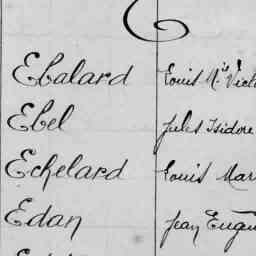 Ebalard Louis M.
Ebel Jules Isidore
Echelard Louis Mar
Edan Jean Eugè